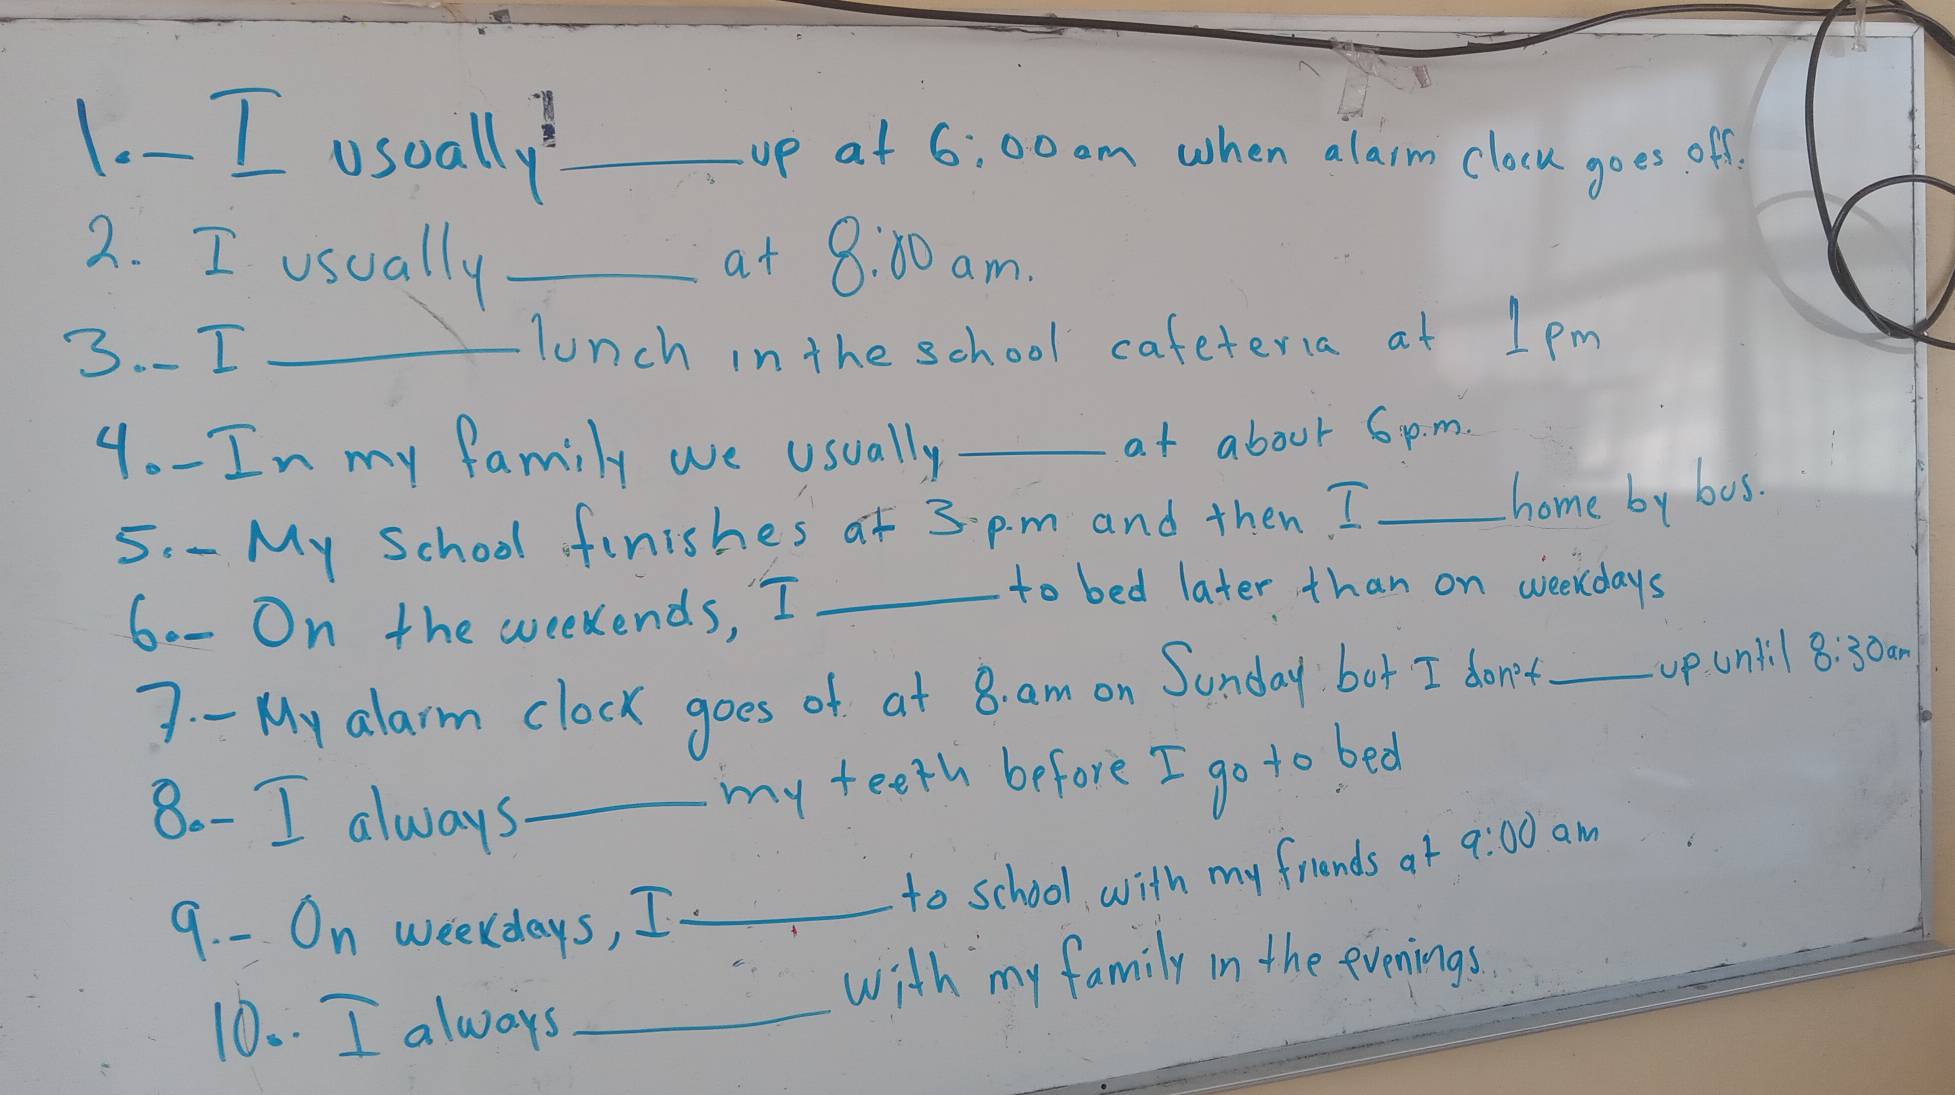 1.- I usually ______ up at 6:00 am when alarm clock goes off.
2. I usually ______ at 8:00 am.
3.- I ______ lunch in the school cafeteria at 1 pm
4.- In my family we usually ______ at about 6 p.m.
5.- My school finishes at 3 p.m and then I ______ home by bus.
6.- On the weekends, I ______ to bed later than on weekdays
7.- My alarm clock goes of at 8.am on Sunday but I don't ______ up until 8:30am
8.- I always ______ my teeth before I go to bed
9.- On weekdays, I ______ to school with my friends at 9:00 am
10.. I always ______ with my family in the evenings.